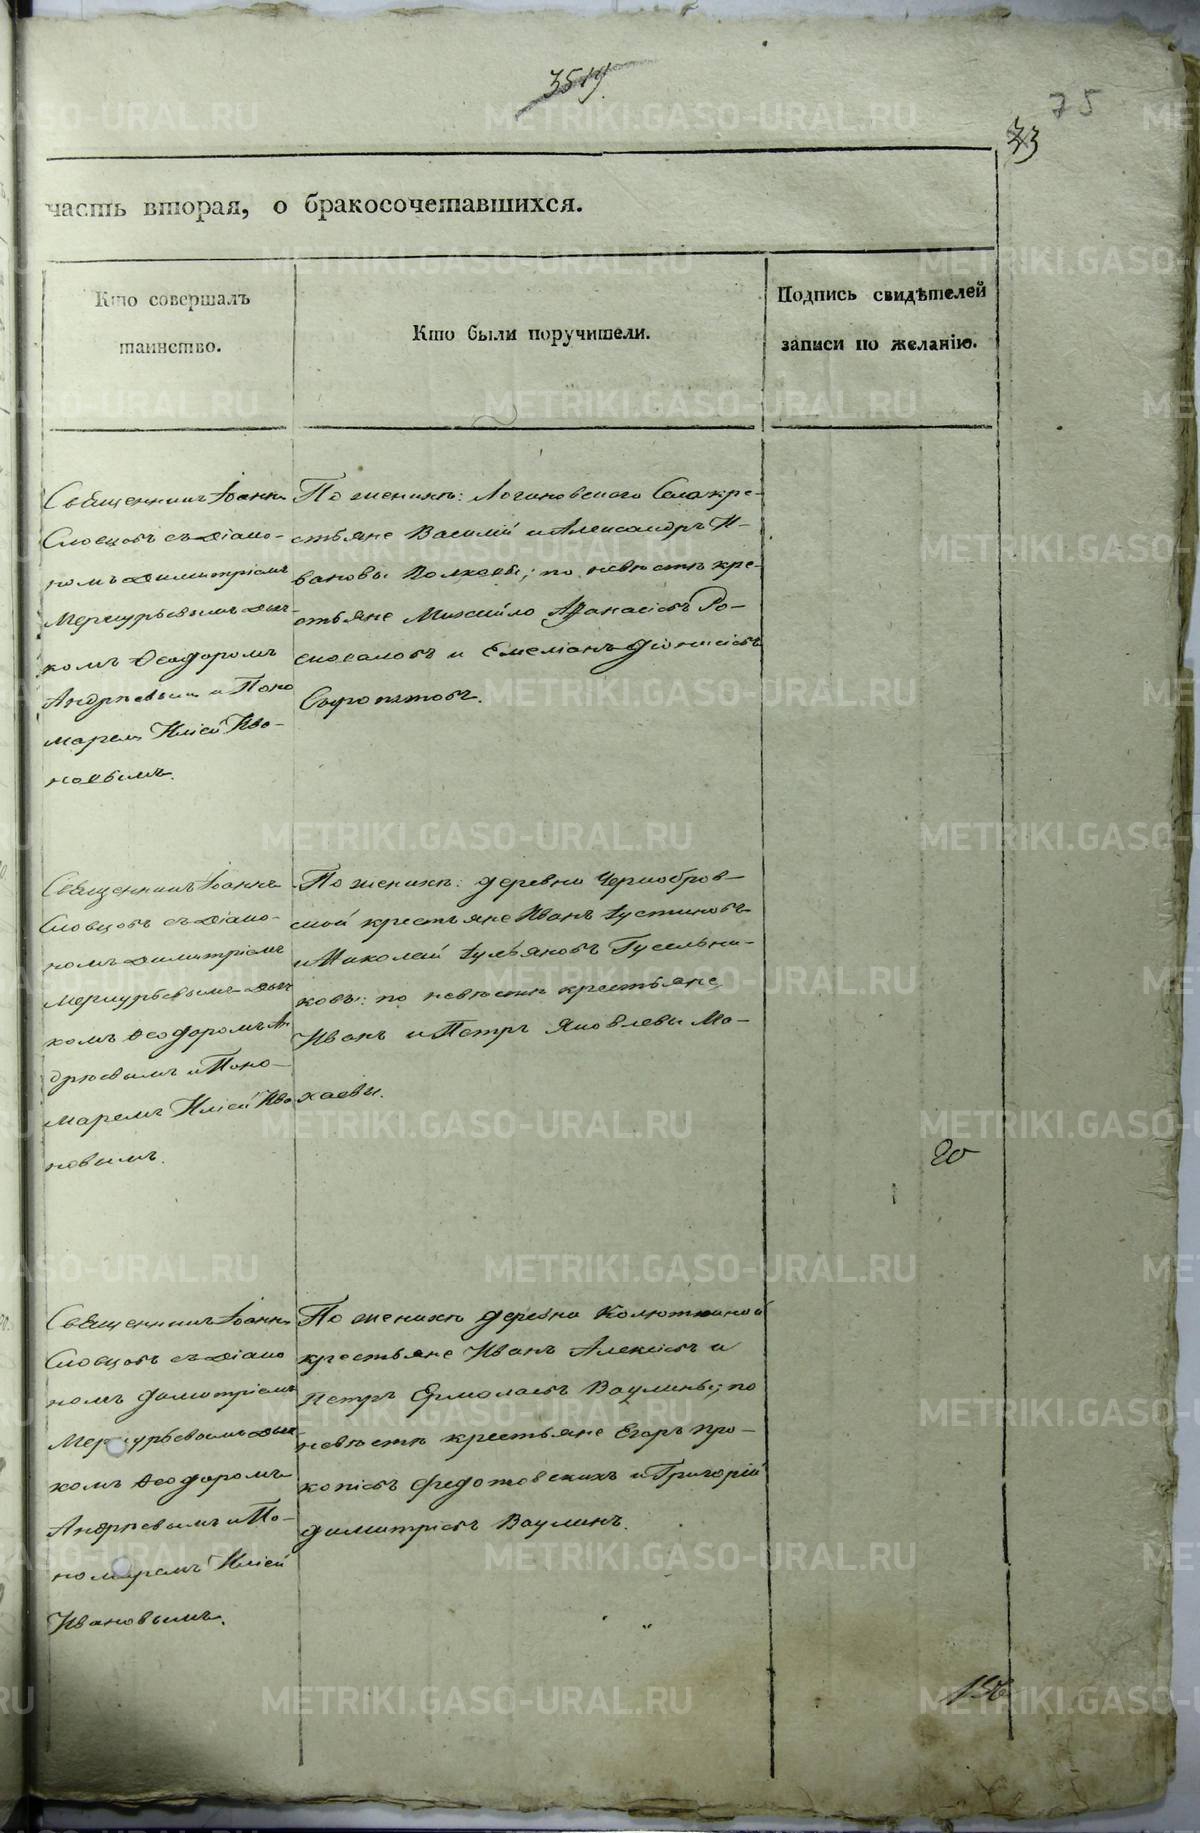 3519
75
33
часть вторая, о бракосочетавшихся.
Кто совершалъ
таинство.
Кто были поручители.
Подпись свидѣтелей
записи по желанію.
Священникъ Іоаннъ
Словцовъ съ Діако-
номъ Димитріемъ
Меркурьевымъ Дьяч-
комъ Ѳеодоромъ
Андрѣевымъ и Поно
маремъ Иліей Ива-
новымъ.
По женихѣ: Логиновскаго Села кре-
стьяне Василій и Александръ И-
вановы Волковы; по невѣстѣ кре-
стьяне Михайло Афанасіевъ Ро-
 и Емеліанъ Діонисіевъ
Сыропятовъ.
Священникъ Іоаннъ
Словцовъ съ Діако-
номъ Димитріемъ
Меркурьевымъ Дьяч
комъ Ѳеодоромъ Ан
дрѣевымъ и Поно-
маремъ Иліей Ива
новымъ.
По женихѣ: деревни Чернобров-
ской крестьяне Иванъ Іустиновъ
и Николай Іульяновъ Гусельни-
ковъ: по невѣстѣ крестьяне
Иванъ и Петръ Яковлевы Мо-
хаевы.
20
Священникъ Іоаннъ
Словцовъ съ Діако
номъ Димитріемъ
Меркурьевымъ Дьяч-
комъ Ѳеодоромъ
Андрѣевымъ и По-
номаремъ Иліей
Ивановымъ.
По женихѣ деревни Колюткиной
крестьяне Иванъ Алексіевъ и
Петръ Ермолаевъ Ваулины; по
невѣстѣ крестьяне Егоръ Про-
копіевъ Федотовскихъ и Григорій
Димитріевъ Ваулинъ.
METRIKI.GASO-URAL.RU